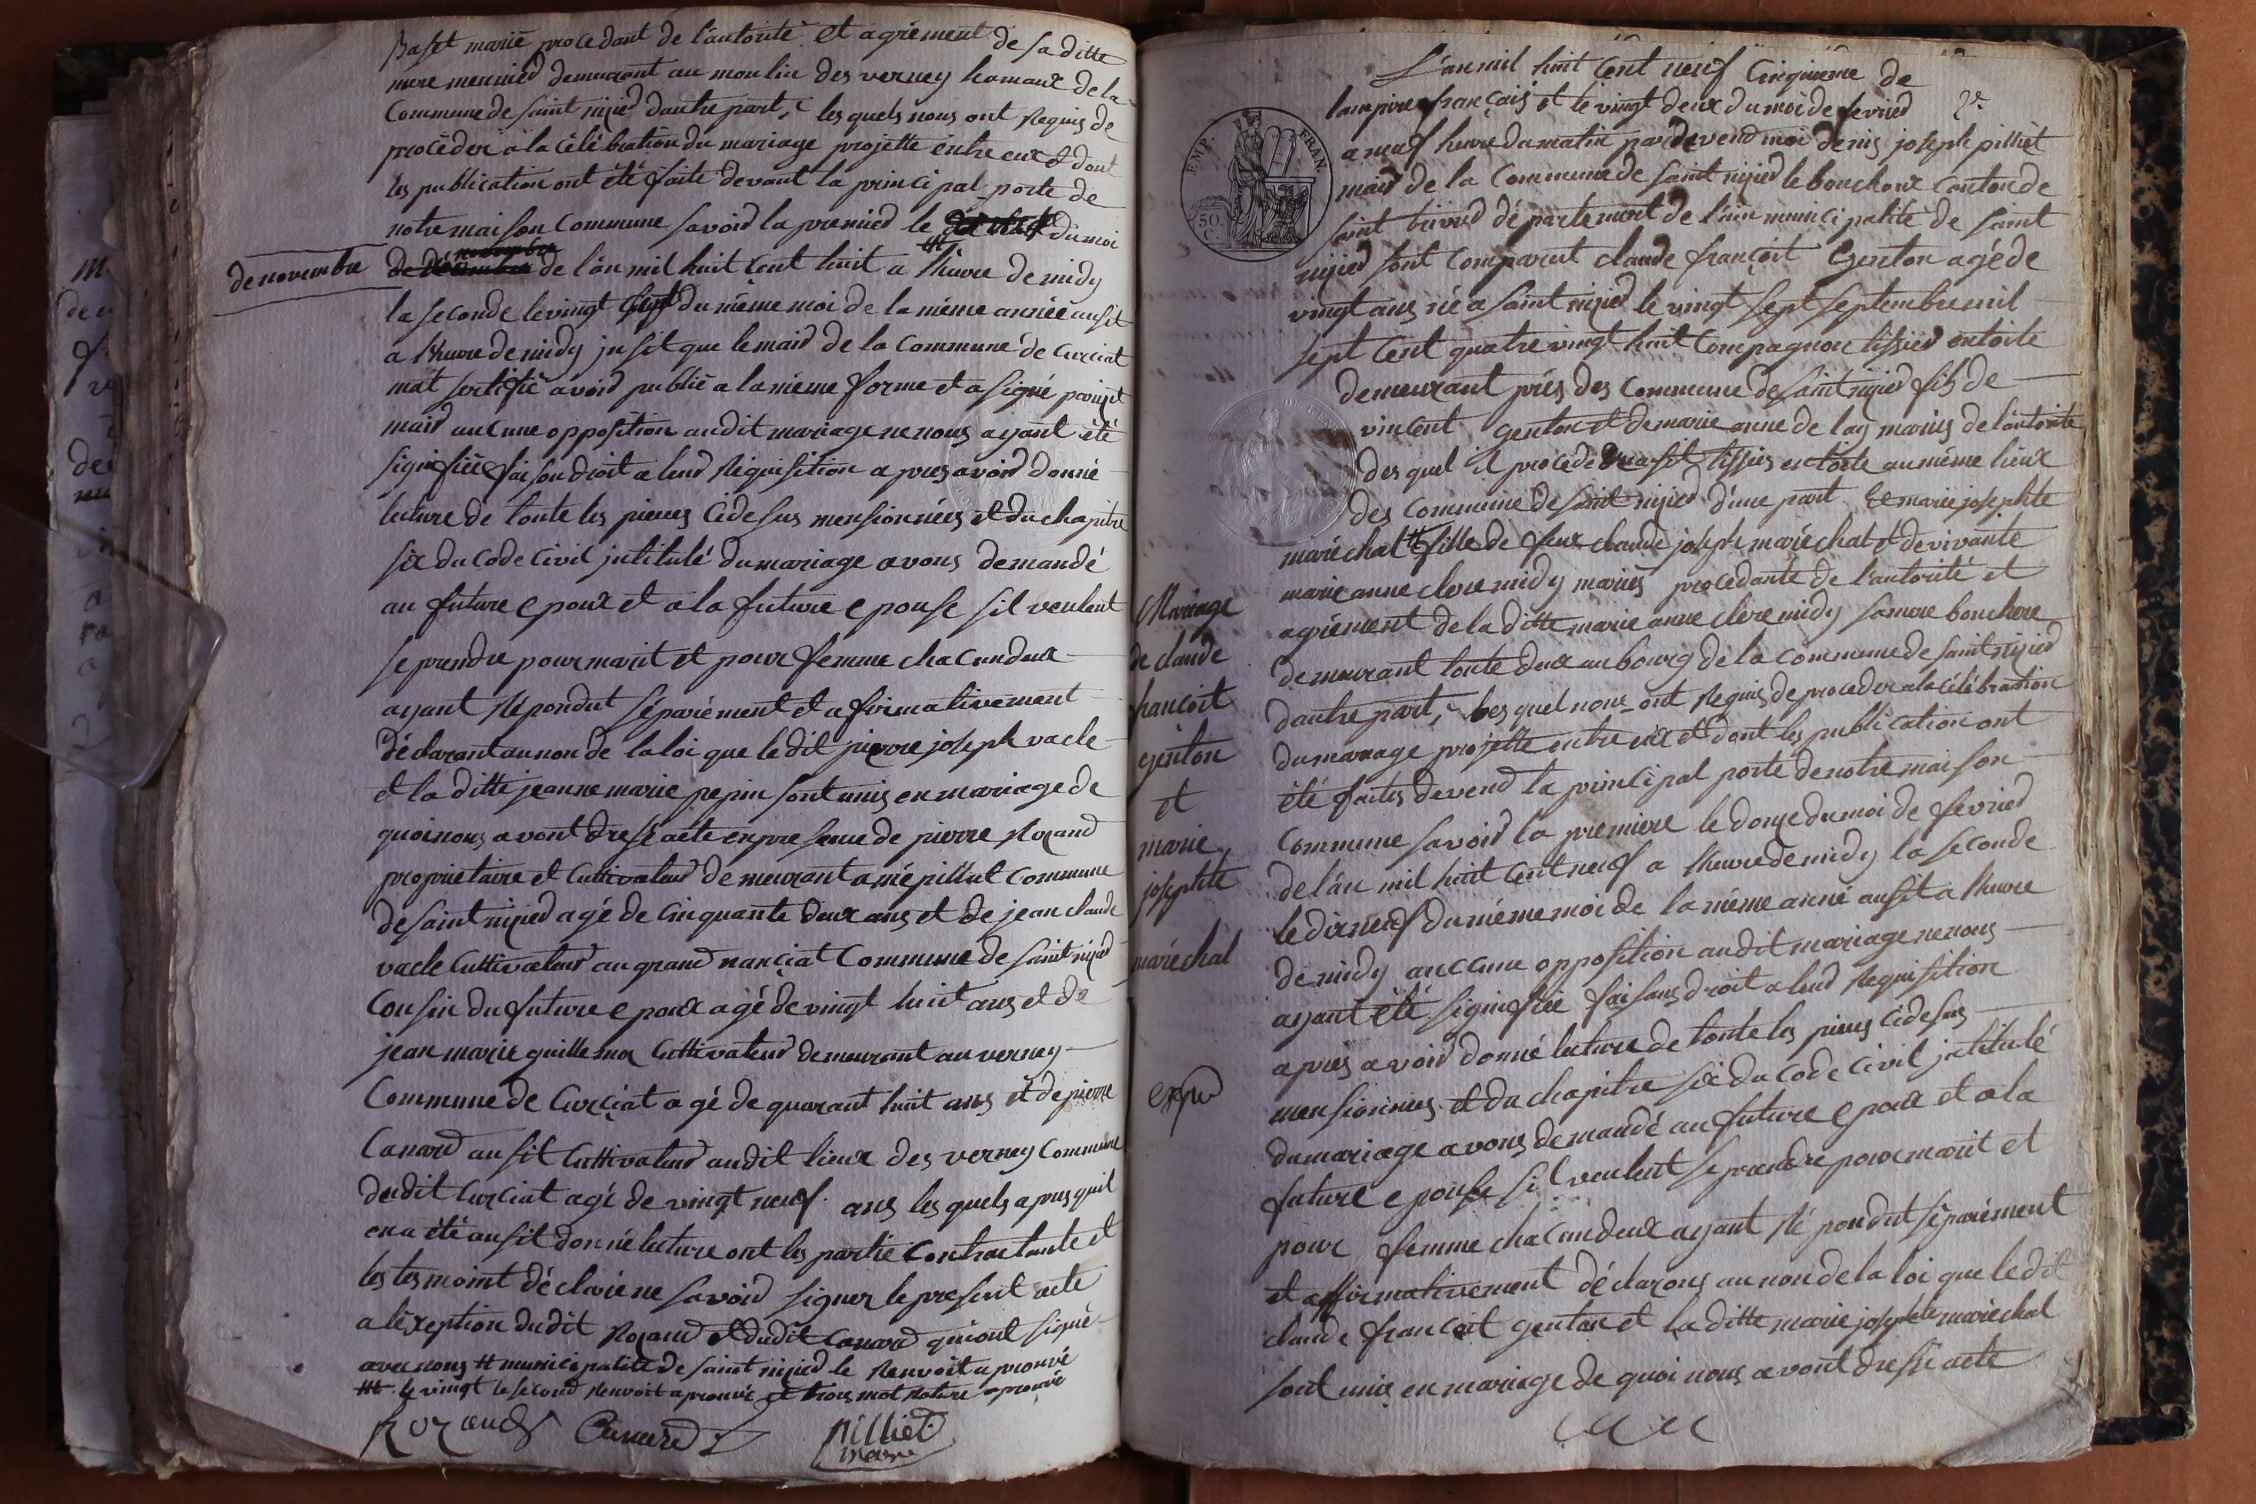 Baset marié procedant de l'autorité et agrément de sa ditte
mere meunied demeurant au moulin des verney hamaux de la
Commune de saint nijied dautre part, les quels nous ont Requis de
procéder a la célébration du mariage projetté entre eux et dont
les publication ont été faite devant la principal porte de
notre maison Commune savoir la premied le du moi
de novembre
novembre
de l'an mil huit Cent huit a l'huure de midy
la seconde le vingt du même moi de la même année ausit
a l'huure de midy jusit que le maid de la Commune de Curciat
mat sertifié avoid publié a la même forme et a signé
maid aucune opposition audit mariage ne nous ayant été
signifiée faison droit a leud Réquisition a pres avoid donné
lecture de toute les pieces Cidesus mensionnées et du chapitre
six du Code Civil jntitulé du mariage avons demandé
au future epoux et a la future epouse sil veulent
se prendre pour marit et pour femme chacundeux
ayant Répondut séparément et afirmativement
déclarant au non de la loi que ledit pierre joseph vacle
et la ditte jeanne marie pepin sont unis en mariage de
quoi nous avont dressé acte en presence de pierre Rozand
propriétaire et Cultivateud demeurant a mépillat Commune
de saint nijied agé de Cinquante deux ans et de jean claude
vacle Cultivateud au grand nanciat Commune de saint nijied
Cousin du future epoux agé de vingt huit ans et de
jean marie guillemox Cultivateud demeurant au verney
Commune de Curciat agé de quarant huit ans et de pierre
Canard ausit Cultivateud audit lieux des verney Commune
dudit Curciat agé de vingt neuf ans les quels apres quil
en a été ausit donné lecture ont les partie Contractante et
les tesmoint déclaré ne savoid signer le present acte
a l'exeption dudit Rozand et dudit Canard qui ont signé
avec nous # municipalité de saint nijied le Renvoit a prouvé
le vingt le second Renvoit aprouvé et trois mot Rature aprouvé
Rozand Canard pilliet
maire
L'an mil huit Cent neuf Cinquieme de
lampire français et le vingt deux du moi de fevried
2e
a neuf heure du matin par devend moi denis joseph pilliet
maid de la Commune de saint nijied le bouchoux Canton de
saint trivied département de l'ain municipalité de saint
nijied sont Comparent claude françoit genton agé de
vingt ans né a saint nijied le vingt sept septembre mil
sept Cent quatre vingt huit Compagnon tissied entoile
demeurant prés des Commune de saint nijied fils de
vincent genton et de marie anne de lay mariés de l'autorité
des quel il procéde tissies en toile au même lieux
des Commune de saint nijied d'une part Et marie josephte
maréchal # fille de feux claude joseph maréchal et de vivante
marie anne cleremidy mariés procédante de l'autorité et
agrément de la ditte marie anne cleremidy samere bouchere
demeurant toute deux au bourg de la Commune de saint nijied
dautre part, les quel nous ont Requis de proceder a la célébration
du mariage projetté entre eux et dont les publication ont
été faites devend la principal porte de notre maison
Commune savoid la premiere le douze du moi de fevried
de l'an mil huit Cent neuf a l'huure de midy la seconde
le dixneuf du même moi de la même anné ausit a l'huure
de midy auccune opposition audit mariage ne nous
ayant été signifiée faisans droit a leud Requisition
apres avoid donné lecture de toute les pieces Cidesus
mensionnées et du chapitre six du Code Civil jntitulé
du mariage avons demandé au future epoux et a la
future epouse sil veulent se prendre pour marit et
pour femme chacundeux ayant Répondut séparément
et affirmativement déclarons au non de la loi que ledit
claude françoit genton et la ditte marie josephte maréchal
sont unis en mariage de quoi nous avont dressé acte
Mariage
de claude
francoit
genton
et
marie
josephte
maréchal
EMP. FRAN.
50 C.